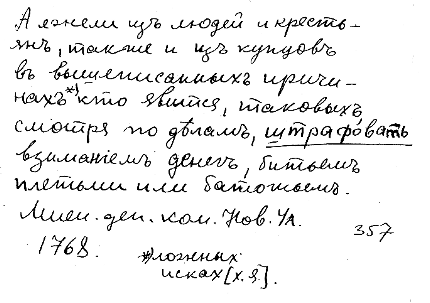 А ежели изъ людей и кресть-
янъ, также и изъ купцовъ
въ вышеписанныхъ причи-
нахъ*) кто явится, таковыхъ,
смотря по дѣламъ, штрафовать
взиманіемъ денегъ, битьемъ
плетьми или батожьемъ.
Мнен. деп. ком. Нов. Ул. 357
1768.
*) ложных
исках [х. 9.].